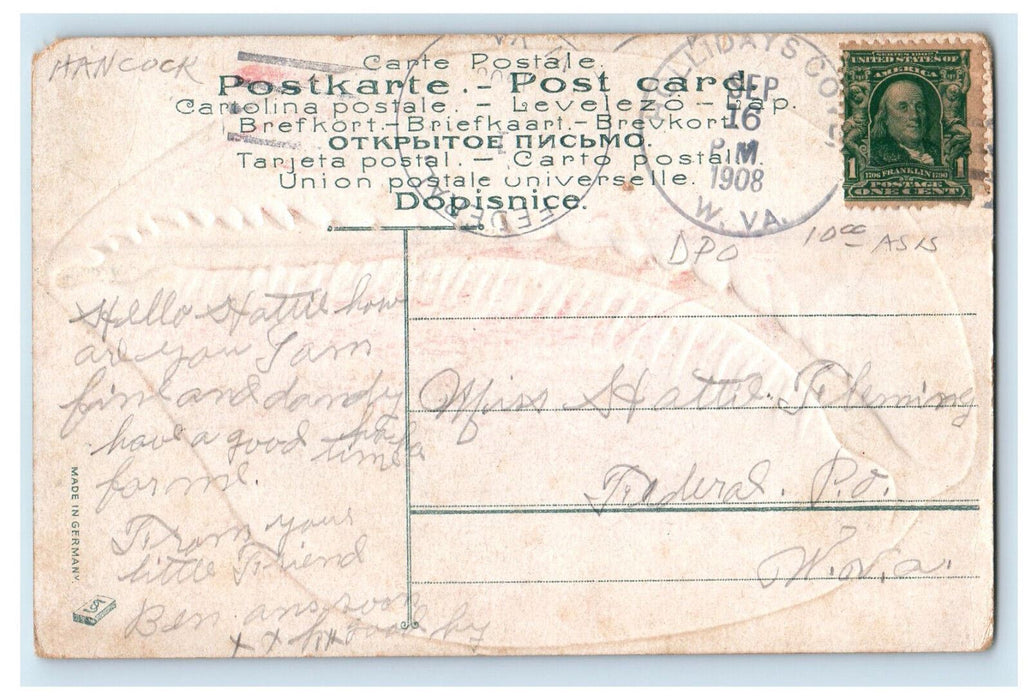 HANCOCK
Carte Postale.
Postkarte. - Post card.
Cartolina postale. - Levelező - Lap.
Brefkort.-Briefkaart.-Brevkort.
ОТКРЫТОЕ ПИСЬМО.
Tarjeta postal. - Carto postal.
Union postale universelle.
Dopisnice.
VA
FEDERAL
HOLLIDAYS CO
SEP
16
P.M
1908
W. VA.
SERIES 1902
UNITED STATES OF
AMERICA
1706 FRANKLIN 1790
1 POSTAGE 1
ONE CENT
DPO
10.00 AS IS
Hello Hattie how
are you I am
fine and dandy
have a good time
farm.
From your
little Friend
Ben. ans soon
x x good by
Miss Hattie Fleming
Federal. P.O.
W.Va.
MADE IN GERMANY.